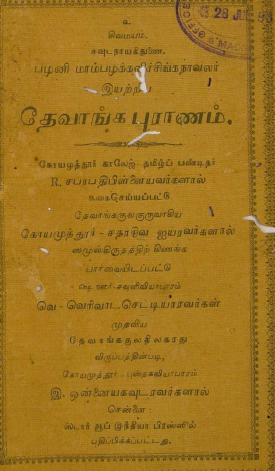 உ
சிவமயம்.
சவுடநாயகத்துணை.
பழனி மாம்பழக்கவிச்சிங்கநாவலர்
இயற்றிய
தேவாங்கபுராணம்.
கோயமுத்தூர் காலேஜ்-தமிழ்ப் பண்டிதர்
R. சபாபதிபிள்ளையவர்களால்
உரைசெய்யப்பட்டு
தேவாங்ககுலகுருவாகிய
கோயமுத்தூர்-சதாசிவ ஐயரவர்களால்
ஸமூலகிருதத்திற் கிணங்க
பார்வையிடப்பட்டு
ஷை ஊர்-சவுளிவியாபாரம்
வெ-வெரிவாடசெட்டியாரவர்கள்
முதலிய
தேவாங்ககுலதிலகரது
விருப்பத்தின்படி,
கோயமுத்தூர்-புஸ்தகவியாபாரம்
இ. ஒன்னையகவுடரவர்களால்
சென்னை:
ஸ்டார் ஆப் இந்தியா பிரஸில்
பதிப்பிக்கப்பட்டது.
28 JUL 93
OFFICE